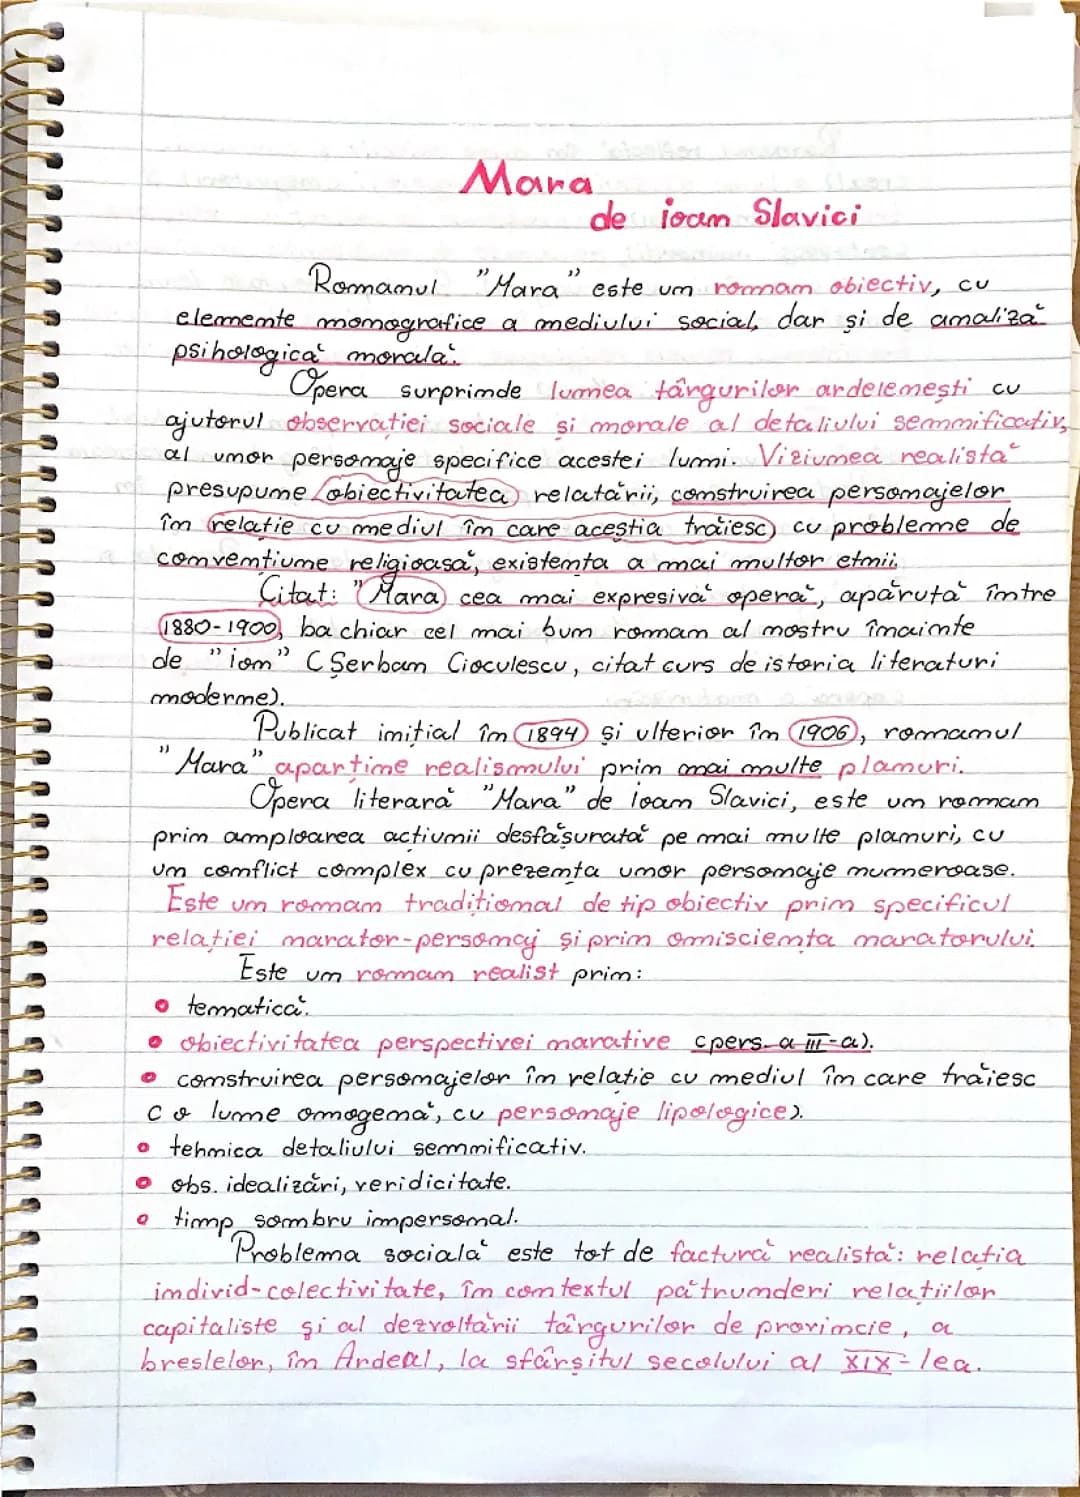 Mara
de ioan Slavici
Romanul "Mara" este un roman obiectiv, cu
elemente monografice a mediului social, dar și de analiză
psihologică morală.
Opera surprinde lumea târgurilor ardelenești cu
ajutorul observației sociale și morale al detaliului semnificativ,
al unor personaje specifice acestei lumi. Viziunea realistă
presupune obiectivitatea relatării, construirea personajelor
în relație cu mediul în care aceștia trăiesc cu probleme de
convențiune religioasă, existența a mai multor etnii.
Citat: "Mara cea mai expresivă operă, apărută între
1880-1900, ba chiar cel mai bun roman al nostru înainte
de "ion" (Șerban Cioculescu, citat curs de istoria literaturi
moderne).
Publicat inițial în 1894 și ulterior în 1906, romanul
"Mara" aparține realismului prin mai multe planuri.
Opera literară "Mara" de Ioan Slavici, este un roman
prin amploarea acțiunii desfășurată pe mai multe planuri, cu
un conflict complex cu prezența unor personaje numeroase.
Este un roman tradițional de tip obiectiv prin specificul
relației narator-personaj și prin omisciența naratorului.
Este un roman realist prin:
• tematică.
• obiectivitatea perspectivei narative (pers. a III-a).
• construirea personajelor în relație cu mediul în care trăiesc
( o lume omogenă, cu personaje lipologice).
• tehnica detaliului semnificativ.
• obs. idealizări, veridicitate.
• timp sombru impersonal.
Problema socială este tot de factură realistă: relația
individ-colectivitate, în contextul pătrunderi relațiilor
capitaliste și al dezvoltării târgurilor de provincie, a
breslelor, în Ardeal, la sfârșitul secolului al XIX-lea.